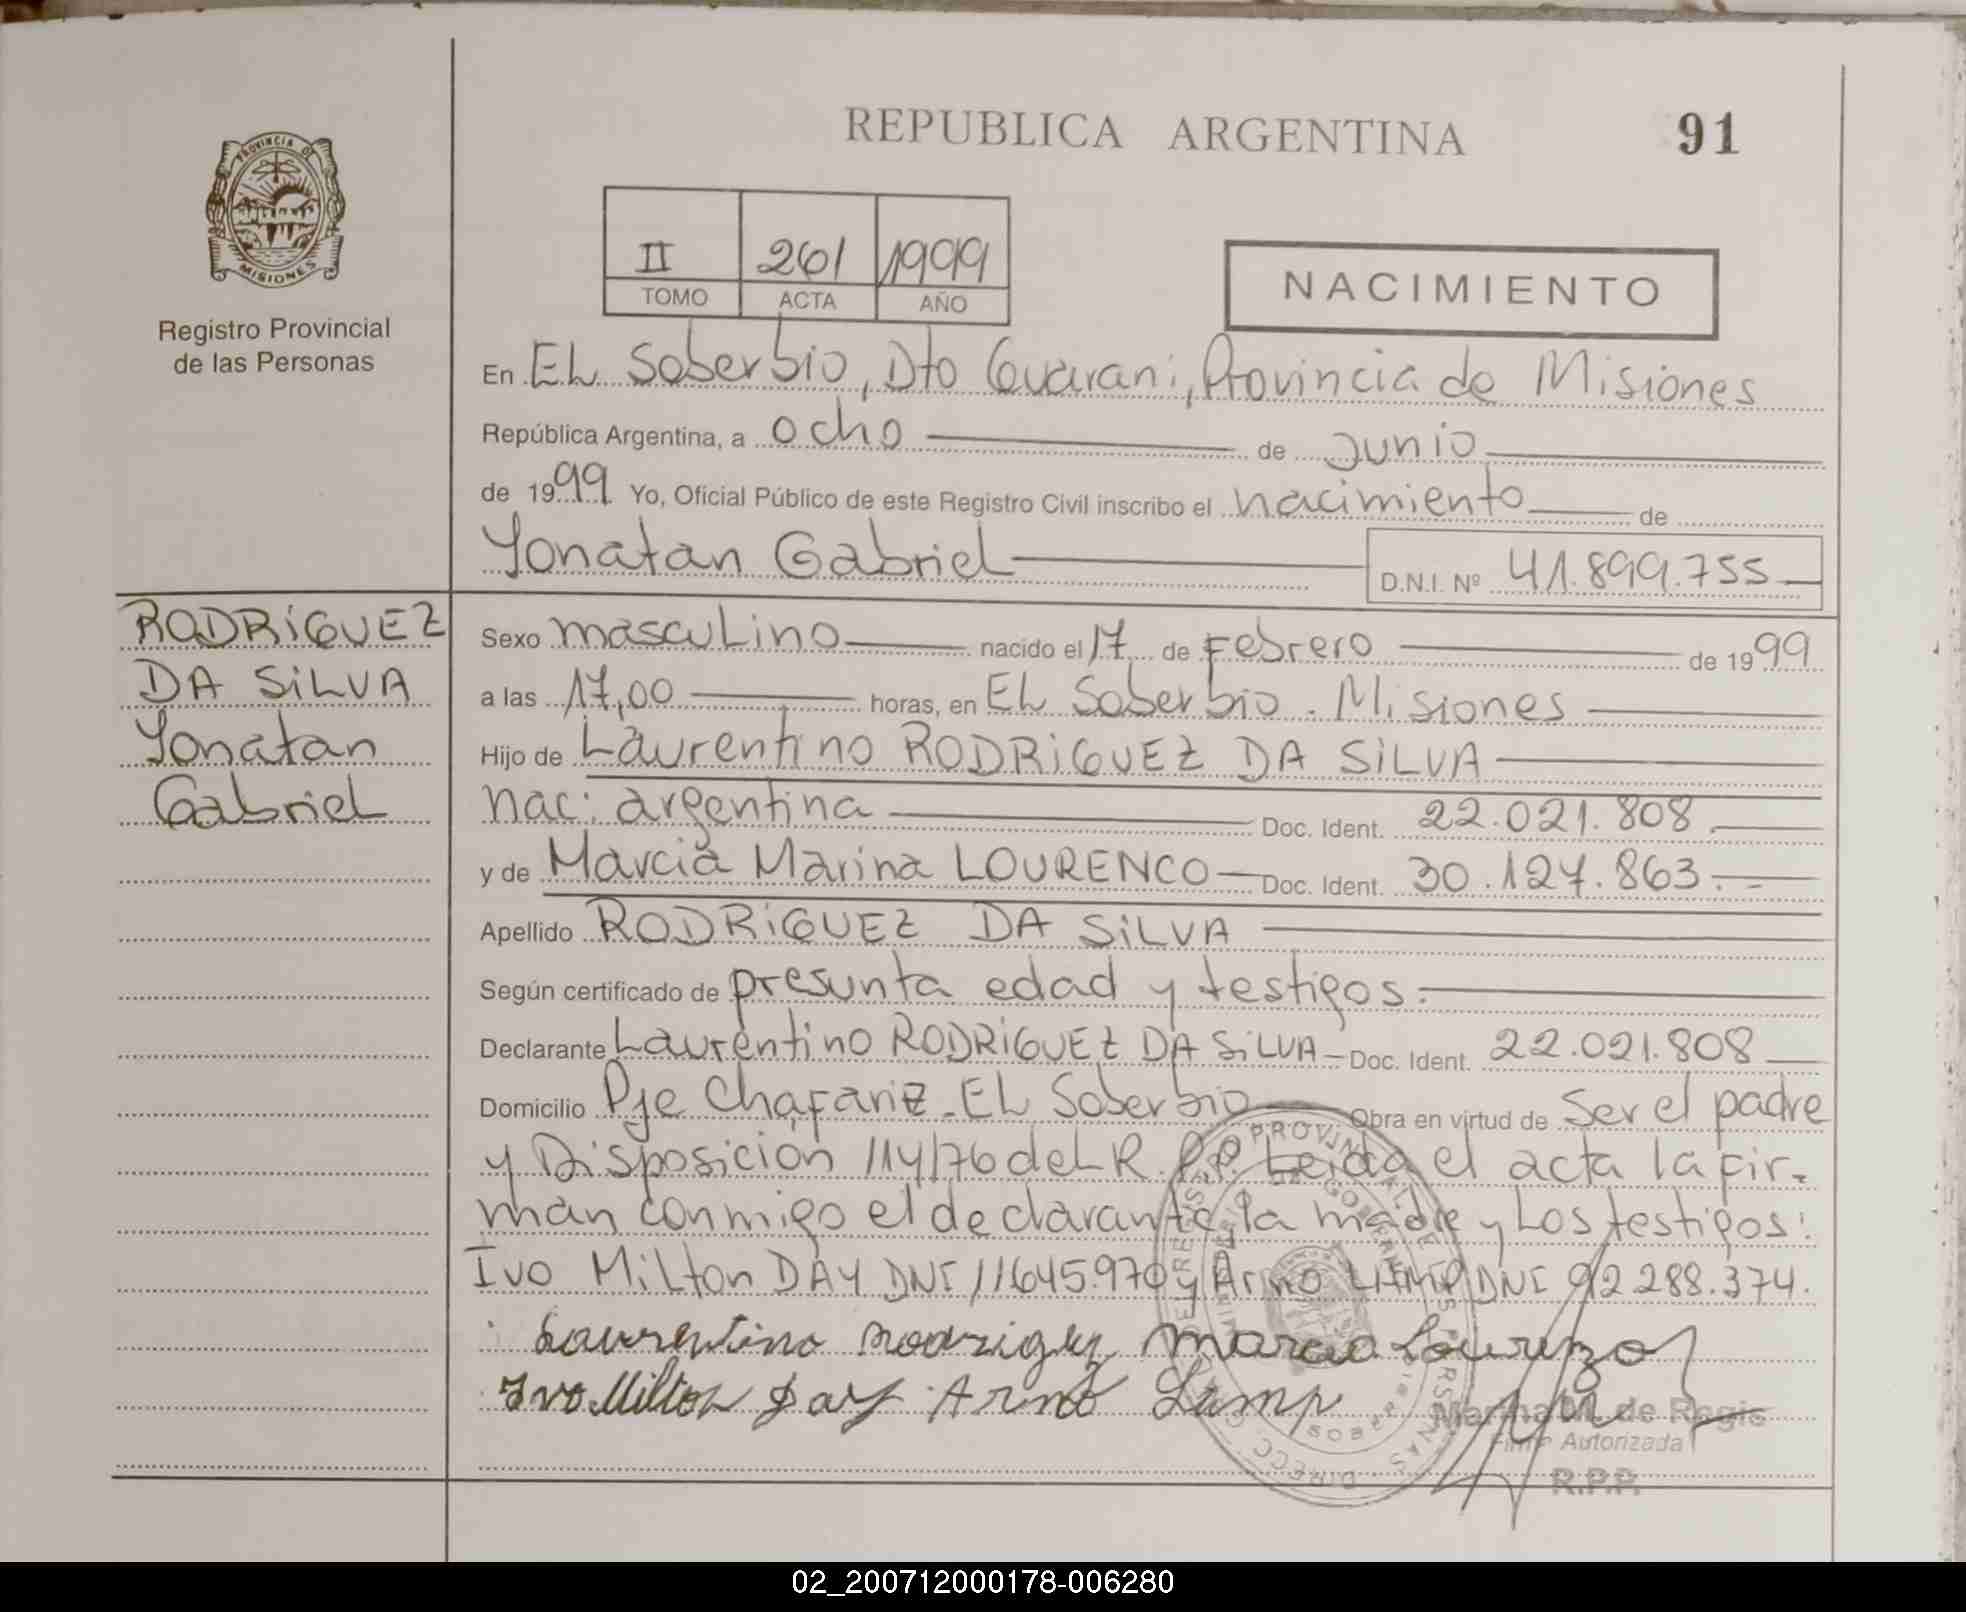 REPUBLICA ARGENTINA
91
PROVINCIA DE
MISIONES
Registro Provincial
de las Personas
II 261 1999
TOMO ACTA AÑO
NACIMIENTO
En EL Soberbio, Dto Guarani, Provincia de Misiones
República Argentina, a ocho de Junio
de 1999 Yo, Oficial Público de este Registro Civil inscribo el nacimiento de
Yonatan Gabriel D.N.I. Nº 41.899.755
RODRIGUEZ
DA SILVA
Yonatan
Gabriel
Sexo mascuLino nacido el 17 de Febrero de 1999
a las 17,00 horas, en EL Soberbio. Misiones
Hijo de Laurentino RODRIGUEZ DA SILVA
nac: argentina Doc. Ident. 22.021.808
y de Marcia Marina LOURENCO Doc. Ident. 30.127.863.
Apellido RODRIGUEZ DA SILVA
Según certificado de presunta edad y testigos.
Declarante Laurentino RODRIGUEZ DA SILVA Doc. Ident. 22.021.808
Domicilio Pje Chafariz. EL Soberbio Obra en virtud de Ser el padre
y Disposición 114/76 deL R.P.P. Leida el acta la fir-
man conmigo el declarante, la madre y Los testigos:
Ivo MiLton DAY DNI 11645.970 y Arno LAMP DNI 92 288.374.
Laurentino Rodrigez Marcia Lourenzo
Ivo Milton Day Arno Lamp
Marina M. de Regis
Firma Autorizada
R.P.P.
02_200712000178-006280